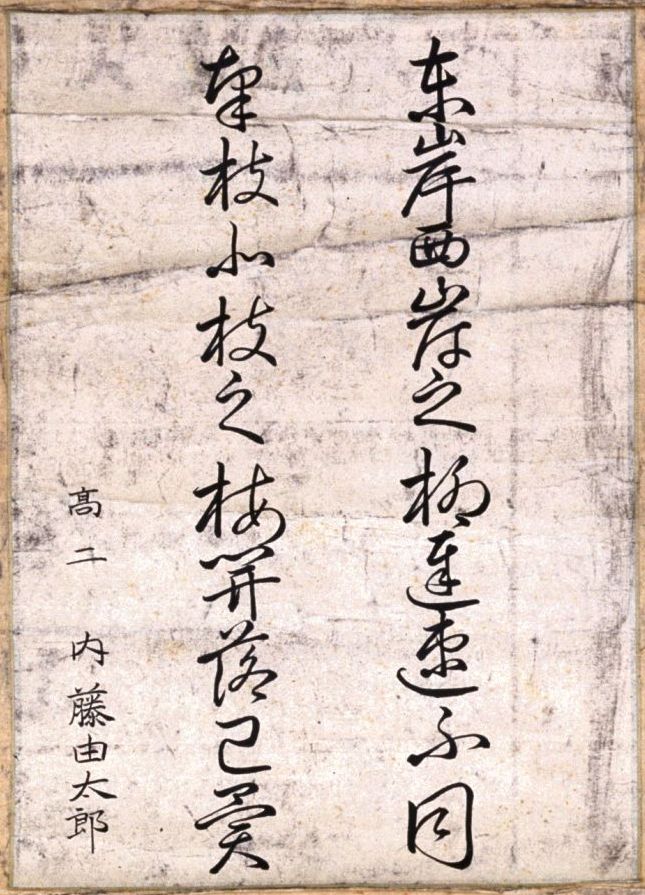 東岸西岸之柳遅速不同
南枝北枝之梅開落已異
高二 内藤由太郎